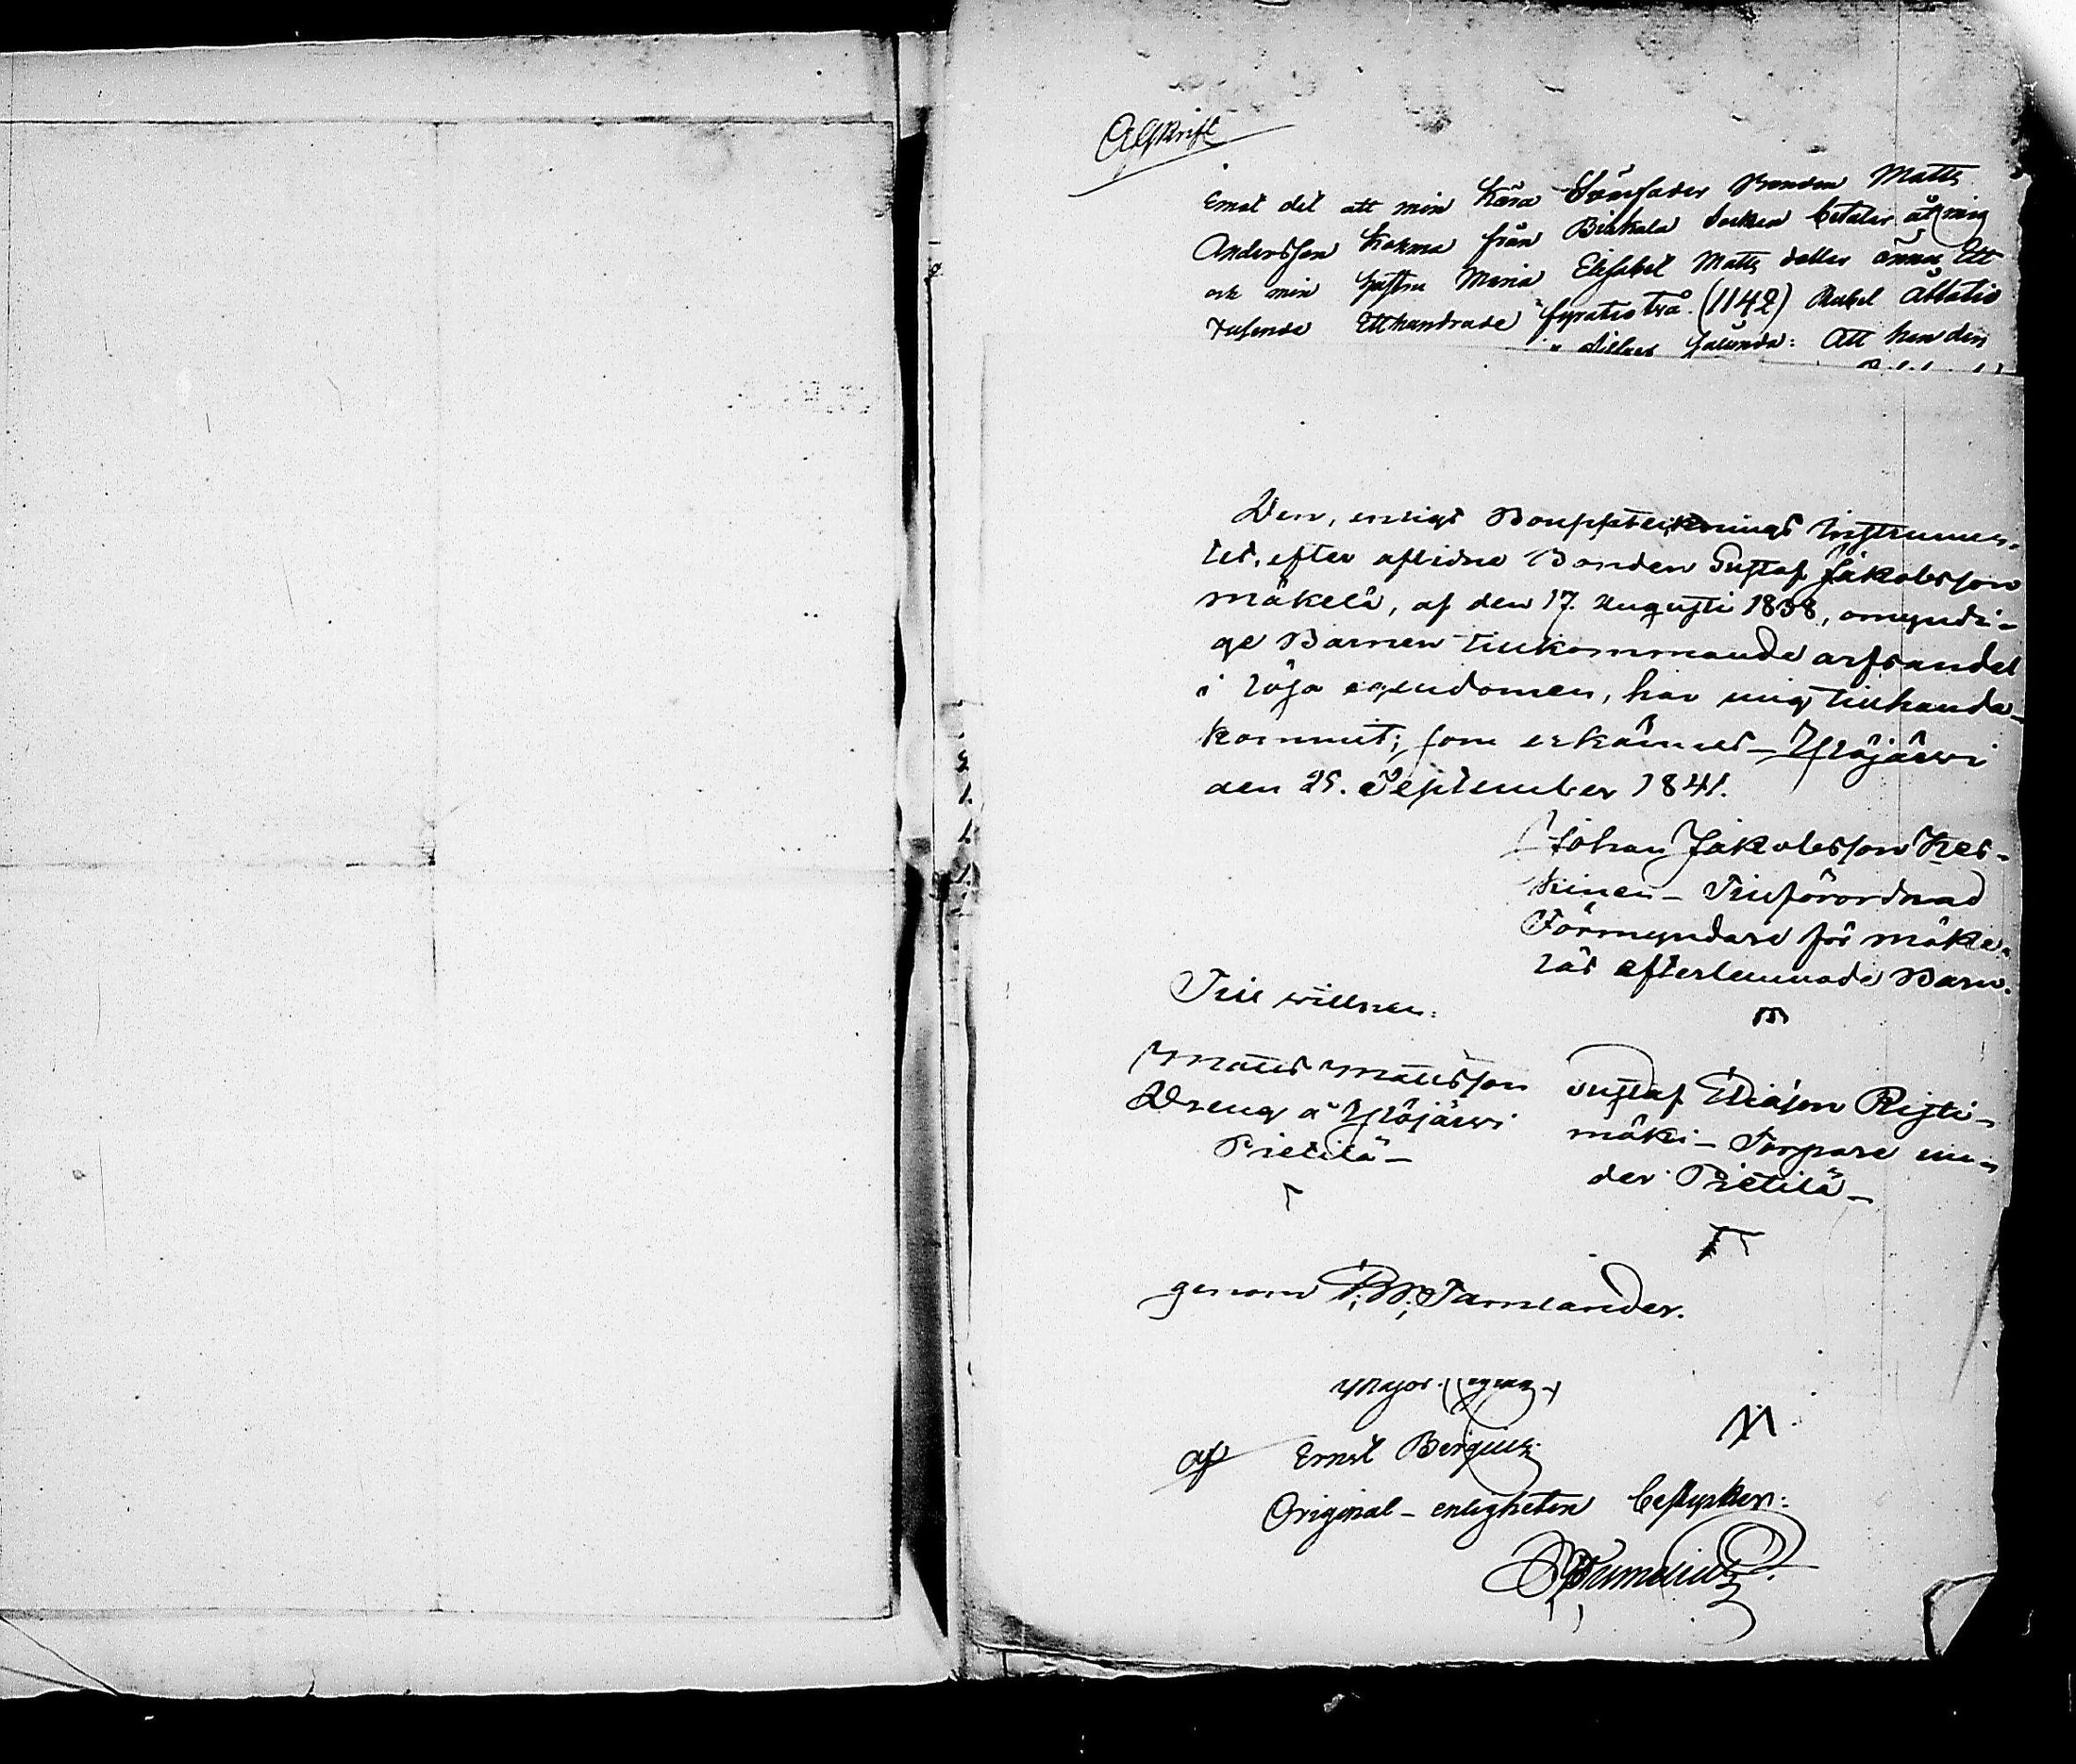 Afskrift
Emot det att min kära Svärfader Bonden Matts
Andersson Kokma från Birkala Socken betalar åt mig
och min hustru Maria Elisabet Matts dotter ännu Ett
tusende Etthundrade fyratio två (1142) Rubel
sålunda: Att han den
Den, enligt Bouppteiknings Instrumen-
tet, efter aflidne Bonden Gustaf Jakobsson
Mäkelä, af den 17. Augusti 1838, omyndi-
ge Barnen tillkommande arfsandel
i lösa egendomen, har mig tillhanda-
kommit; som erkännes – Ylöjärwi
den 25. September 1841.
Johan Jakobsson Kes-
kinen – Tillförordnad
Förmyndare för Mäke-
läs efterlemnade Barn.
Till wittnen:
Matts Mattsson
Dreng å Ylöjärwi
Pietilä –
Gustaf Eliasson Risti-
mäki – Torpare un-
der Pietilä –
genom Tamlander.
Major
af Ernst Bergius
Original-enligheten bestyrker: